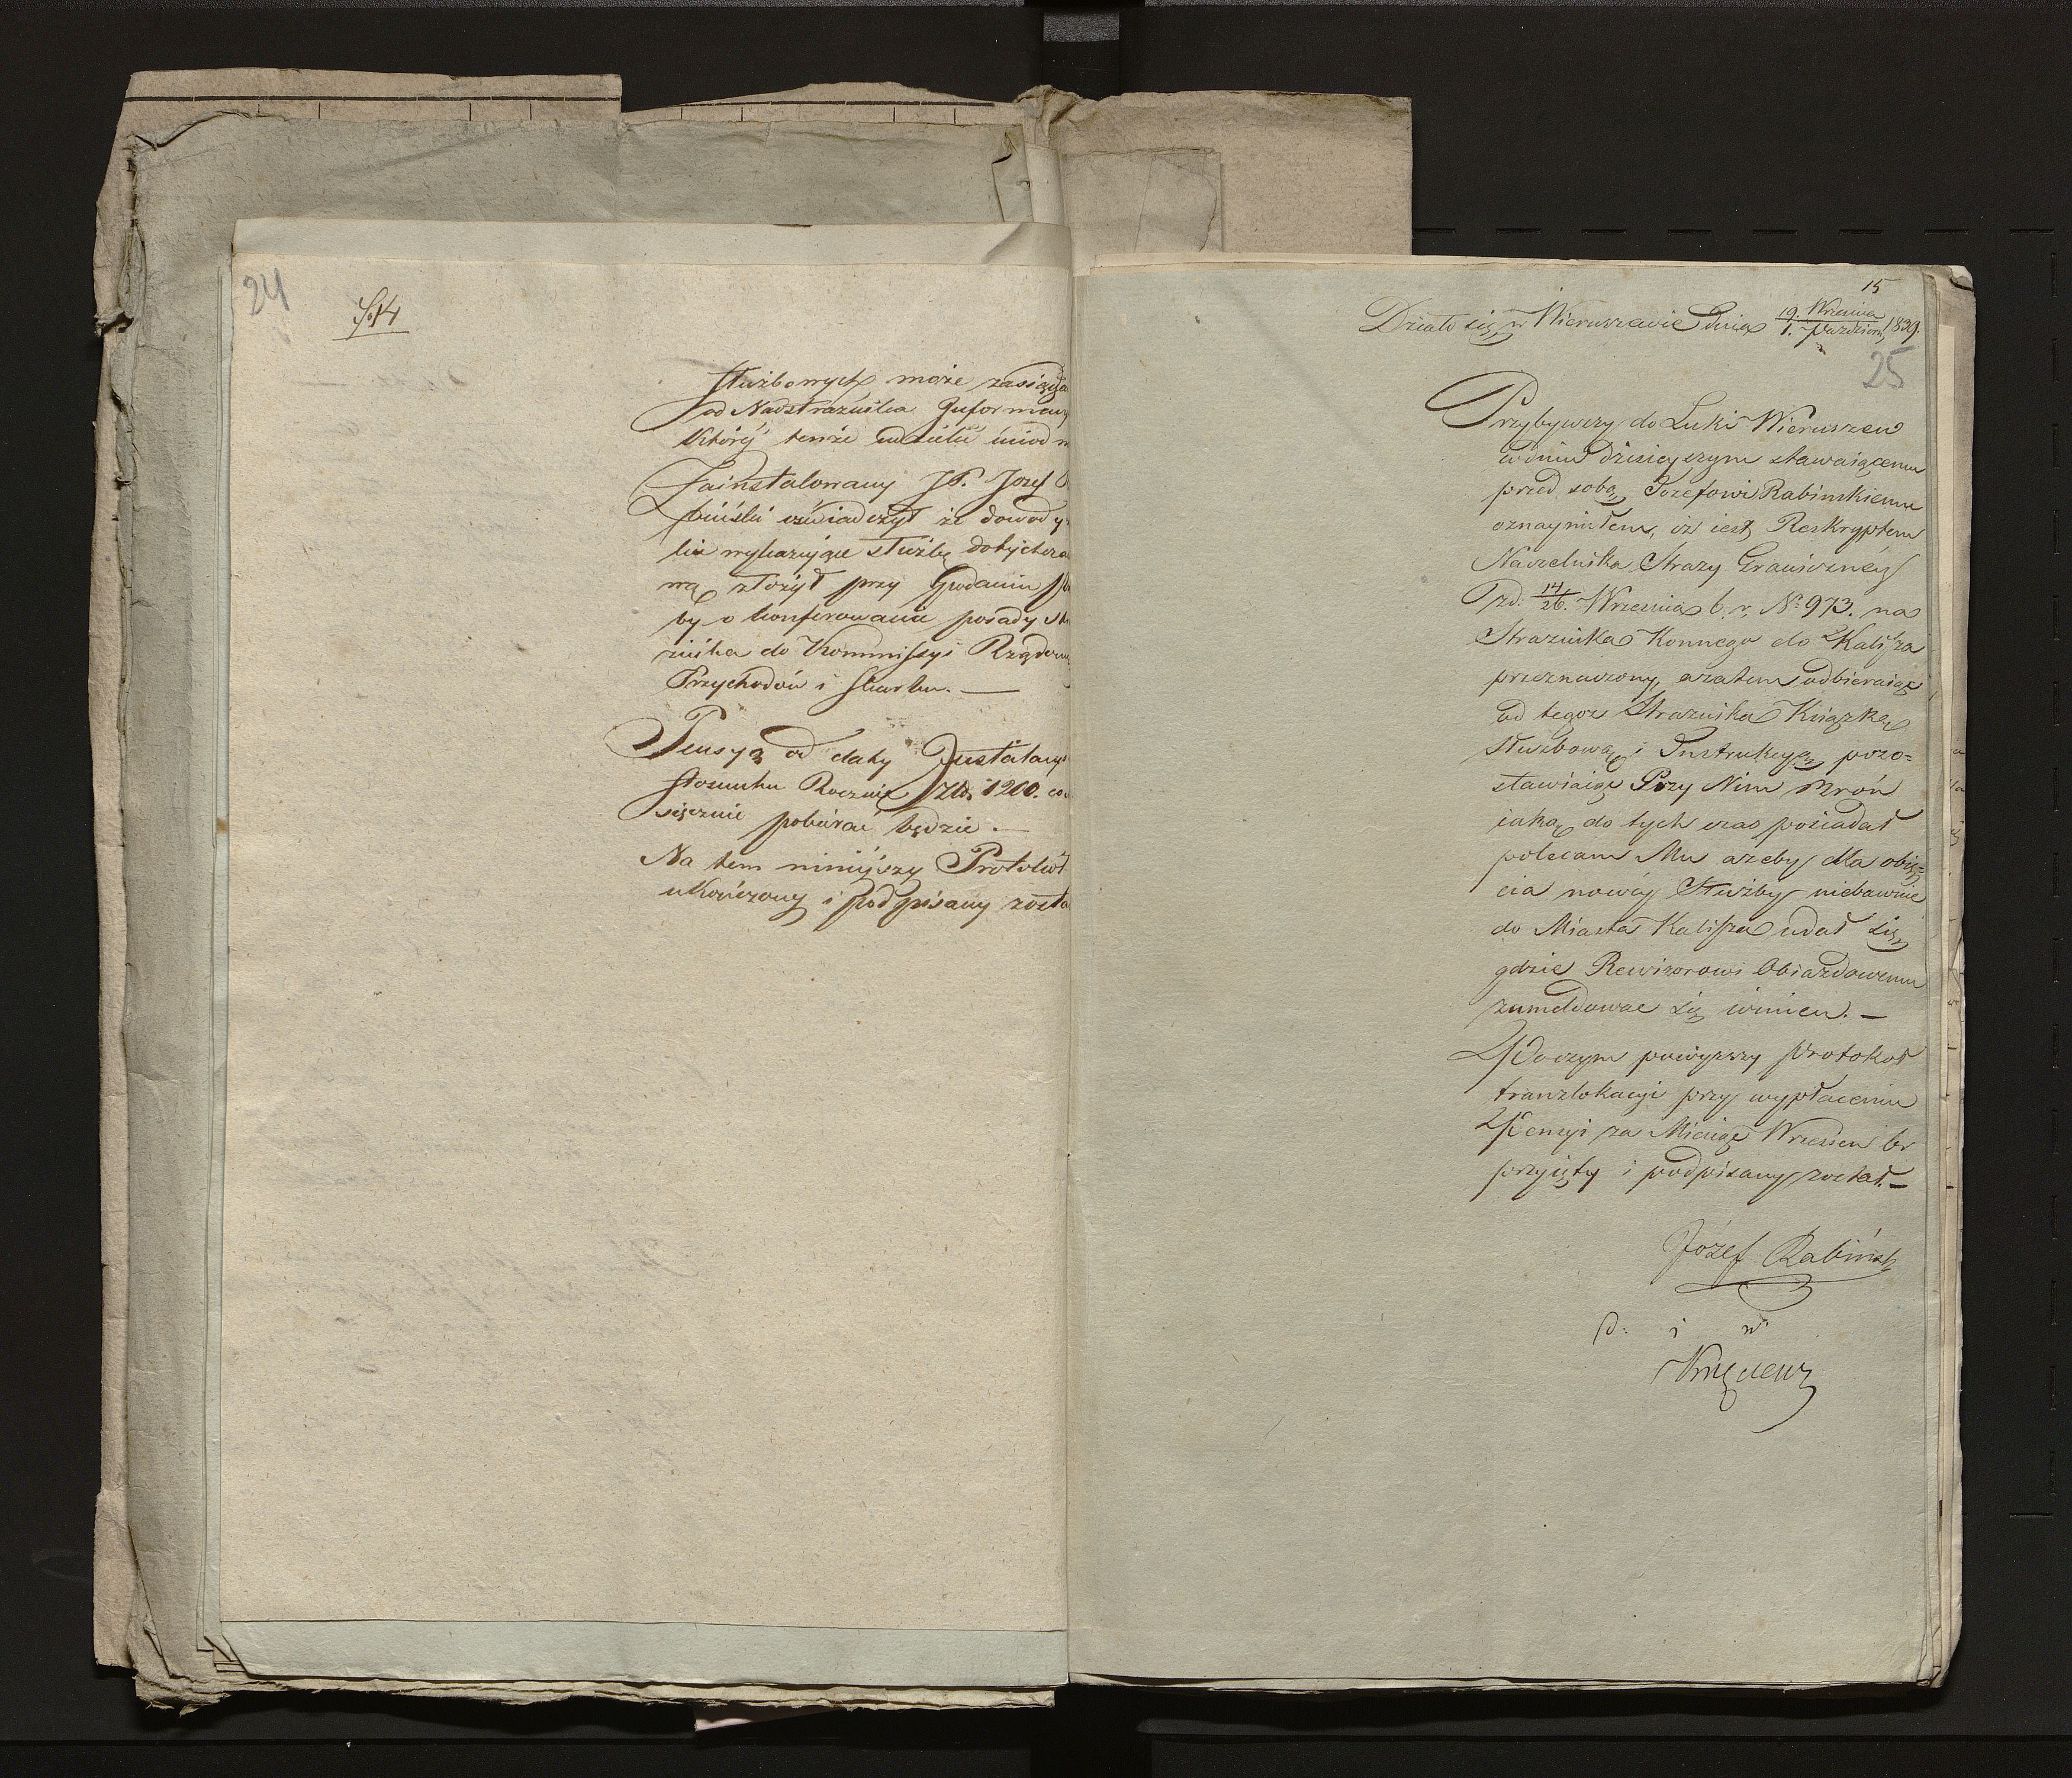 24
14
służbowych może zasięgn
od Nadstrażnika Informacy
który tenże udzielić
Zainstalowany JP. Jozef
biński oświadczył iż dowody
wykazujące służbę dotychcza
wą złożył przy Podaniu
by o konferowanie posady st
nika do Kommissyi Rządow
Przychodów i Skarbu. —
Pensyą od daty Instalacyi
stosunku Rocznie Złp. 1200. co
sięcznie pobierać będzie. —
Na tem niniejszy Protokół
ukończony i podpisany zosta
15
Działo się w Wieruszewie Dnia 19. Września / 1. Październ. 1839.
25
Przybywszy do Luki Wieruszew
w dniu dzisieyszym stawaiącemu
przed sobą Jozefowi Rabinskiemu
oznaymiłem, iż iest Reskryptem
Naczelnika Strazy Graniczney
zd: 14/26. Września b. r. Nº 973. na
Straznika Konnego do Kalisza
przeznaczony, a zatem odbieraiąc
od tegoz Straznika Książkę
słuzbową i Instrukcyą, pozo=
stawiaiąc Przy Nim Broń
iaką do tych czas posiadał
polecam Mu azeby dla obię=
cia nowéj Służby niebawnie
do Miasta Kalisza udał się
gdzie Rewizorowi Obiazdowemu
zameldowac się winien. —
Poczym powyzszy Protokoł
tranzlokacyi przy wypłaceniu
Pensyi za Miesiąc Wrzesien br
przyięty i podpisany został. —
Józef Rabiński
d. i w